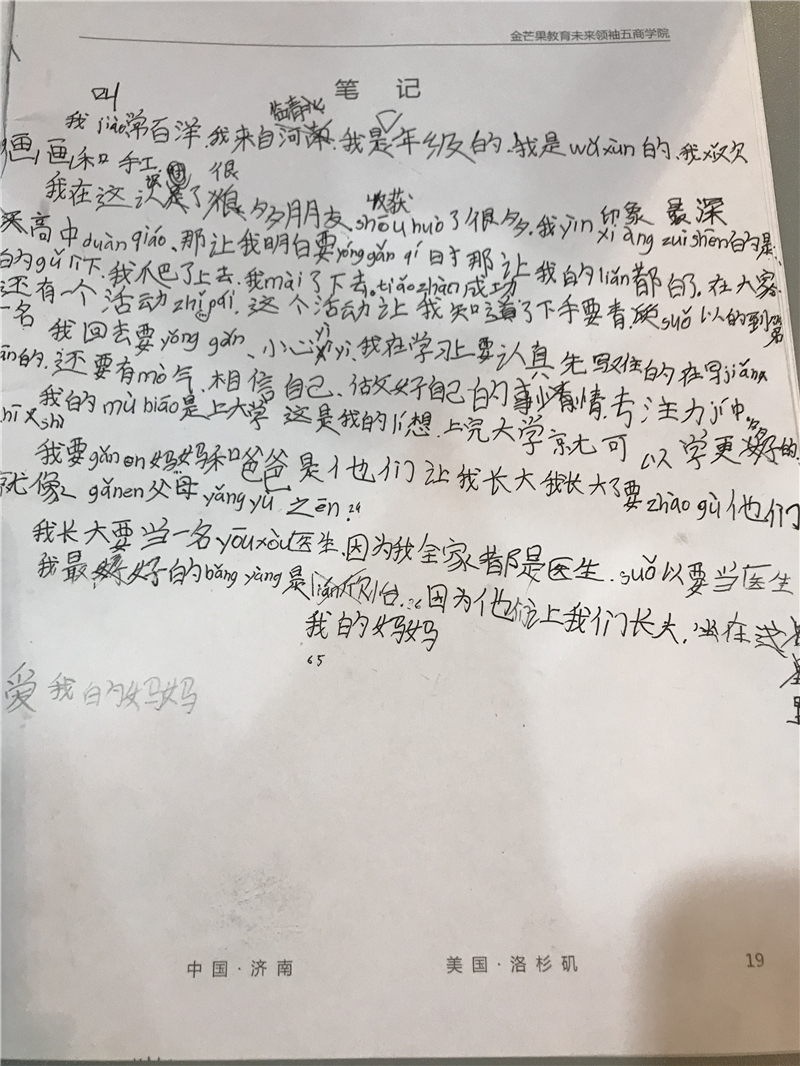 金芒果教育未来领袖五商学院
笔 记
叫 临清 河
我 jiào常百洋.我来自河南.我是年级的.我是wǔ xùn的.我欢
画画和手工. 很
我在这认识了狼多朋友 shōu huò了很多.我yìn 印象 最深
收获 xiàng zuì shēn的是
高中duàn qiáo、那让我明白要yǒng gǎn
的gǔ lì下.我爬了上去.我mài了下去。tiǎo zhàn成功 那让我的liǎn都白了.在大家
还有一个活动zhǐ pái.这个活动让我知道了下手要青, suǒ以的到第
一名
我回去要yǒng gǎn、小心yì yì.我在学习上要认真先 住的在写jiǎn
的.还要有mò气.相信自己.做好自己的事情.专注力jí中
我的mù biāo是上大学 这是我的lǐ想.上完大学就可以学更好的.
我要gǎn en妈妈和爸爸是他们让我长大我长大了要zhào gù他们
就像 gǎn en父母yǎng yù之ēn.
我长大要当一名yōu xòu医生.因为我全家都是医生.suǒ以要当医生
我最好的bǎng yàng是 台.因为他 上我们长大.坐在这
我的妈妈
65
爱我的妈妈
中国·济南 美国·洛杉矶 19